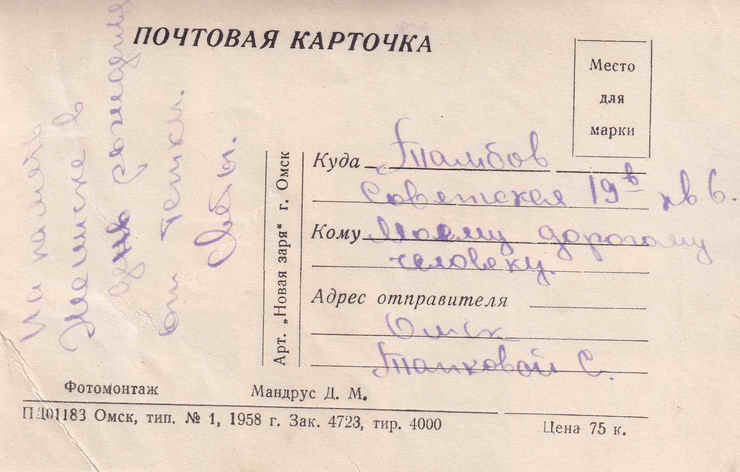 ПОЧТОВАЯ КАРТОЧКА
Место
для
марки
На память
в
день рождения
от тётки
Светы.
Арт. „Новая заря" г. Омск
Куда Тамбов
Советская 19в кв 6.
Кому Моему дорогому
человеку.
Адрес отправителя
Омск
С.
Фотомонтаж Мандрус Д. М.
ПД01183 Омск, тип. № 1, 1958 г. Зак. 4723, тир. 4000 Цена 75 к.